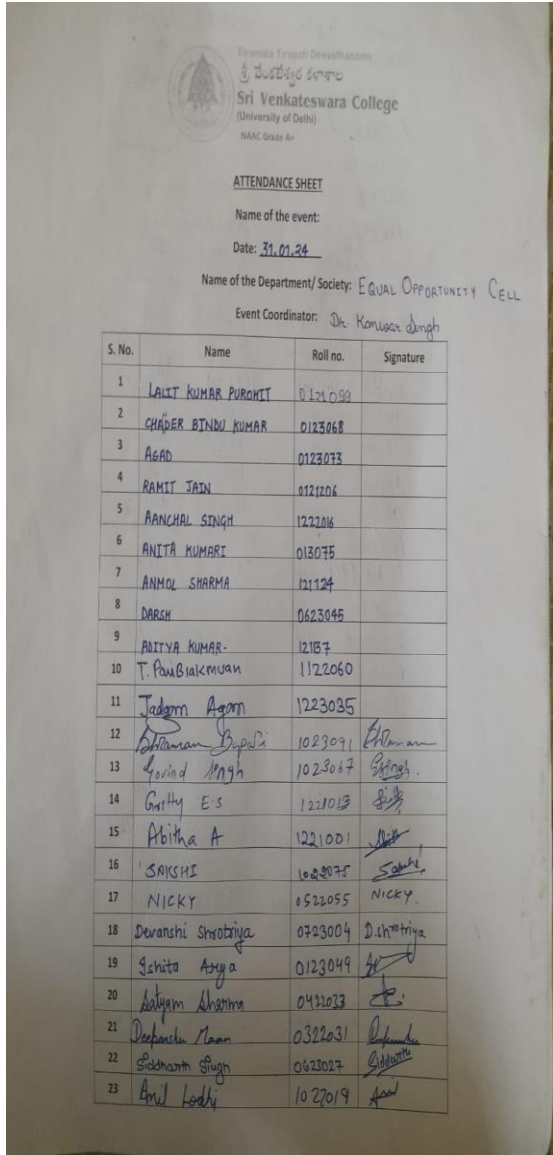 Tirumala Tirupati Devasthanams
శ్రీ వేంకటేశ్వర కళాశాల
Sri Venkateswara College
(University of Delhi)
NAAC Grade A+
ATTENDANCE SHEET
Name of the event:
Date: 31.01.24
Name of the Department/ Society: EQUAL OPPORTUNITY CELL
Event Coordinator: Dr. Kanwar Singh
S. No. Name Roll no. Signature
1 LALIT KUMAR PUROHIT 0121099
2 CHADER BINDU KUMAR 0123068
3 AGAD 0123073
4 RAMIT JAIN 0121206
5 AANCHAL SINGH 1222016
6 ANITA KUMARI 013075
7 ANMOL SHARMA 121124
8 DARSH 0623045
9 ADITYA KUMAR- 12137
10 T. PauBiakmuan 1122060
11 Jadgm Agam 1223035
12 1023091
13 Govind Singh 1023067 GSingh.
14 E.S 1221013
15 Abitha A 1221001
16 SAKSHI 1022075 Sakshi
17 NICKY 0522055 NICKY.
18 Devanshi Shrotriya 0723004 D.shrotriya
19 Ishita Arya 0123049
20 Satyam Sharma 0422033
21 Deepanshu Maan 0322031
22 Siddharth Singh 0623027 Siddharth
23 Anil Lodhi 1022019